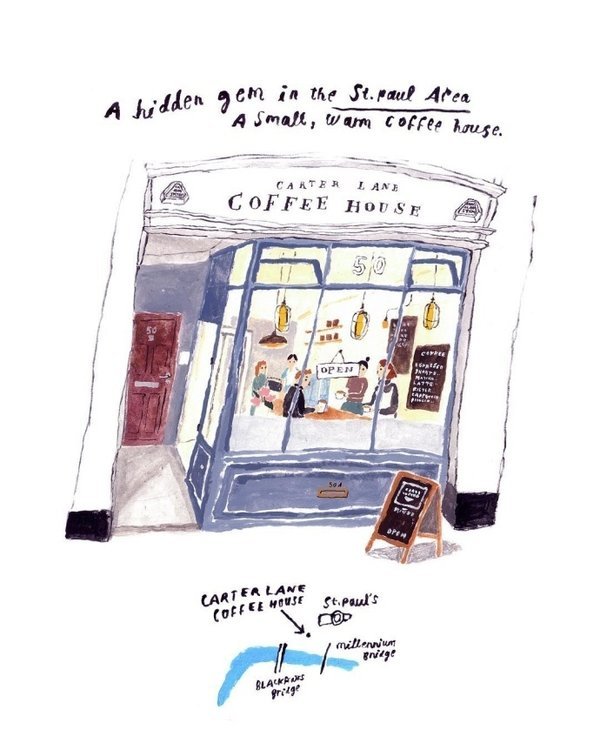 A hidden gem in the St. paul Area
A small, warm coffee house.
CARTER LANE
COFFEE HOUSE
50
50
OPEN
COFFEE
ESPRESSO
LATTE
OPEN
50A
CARTER LANE
COFFEE HOUSE
St. Paul's
millennium
Bridge
Bridge